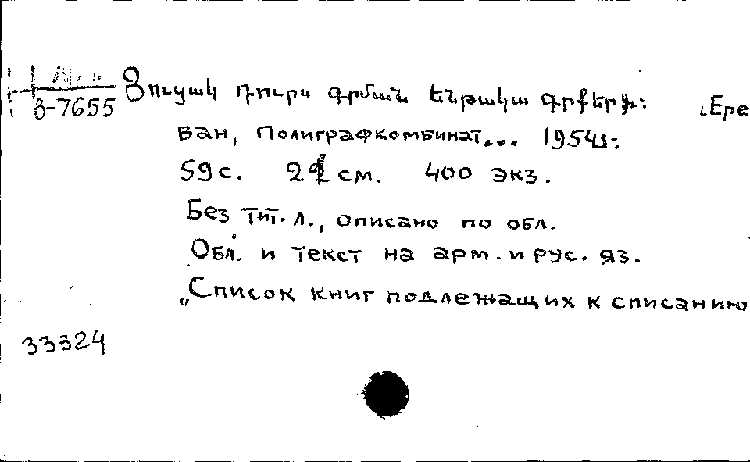 Ցուցակ դուրս գրման ենթակա գրքերի: „Ере
3-7655
ван, Полиграфкомбинат... 1954թ.
59 с. 22 см. 400 экз.
Без тит. л., описано по обл.
Обл. и текст на арм. и рус. яз.
„Список книг подлежащих к списанию
33324